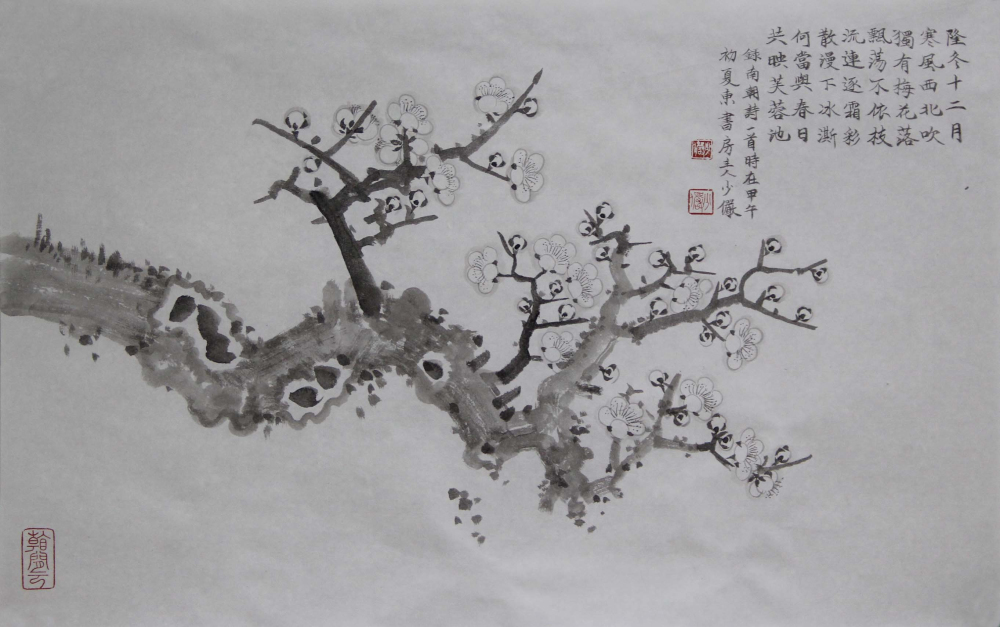 隆冬十二月
寒風西北吹
獨有梅花落
飄荡不依枝
流連逐霜彩
散漫下冰澌
何當與春日
共映芙蓉池
錄南朝詩一首時在甲午
初夏東書房主人少儼